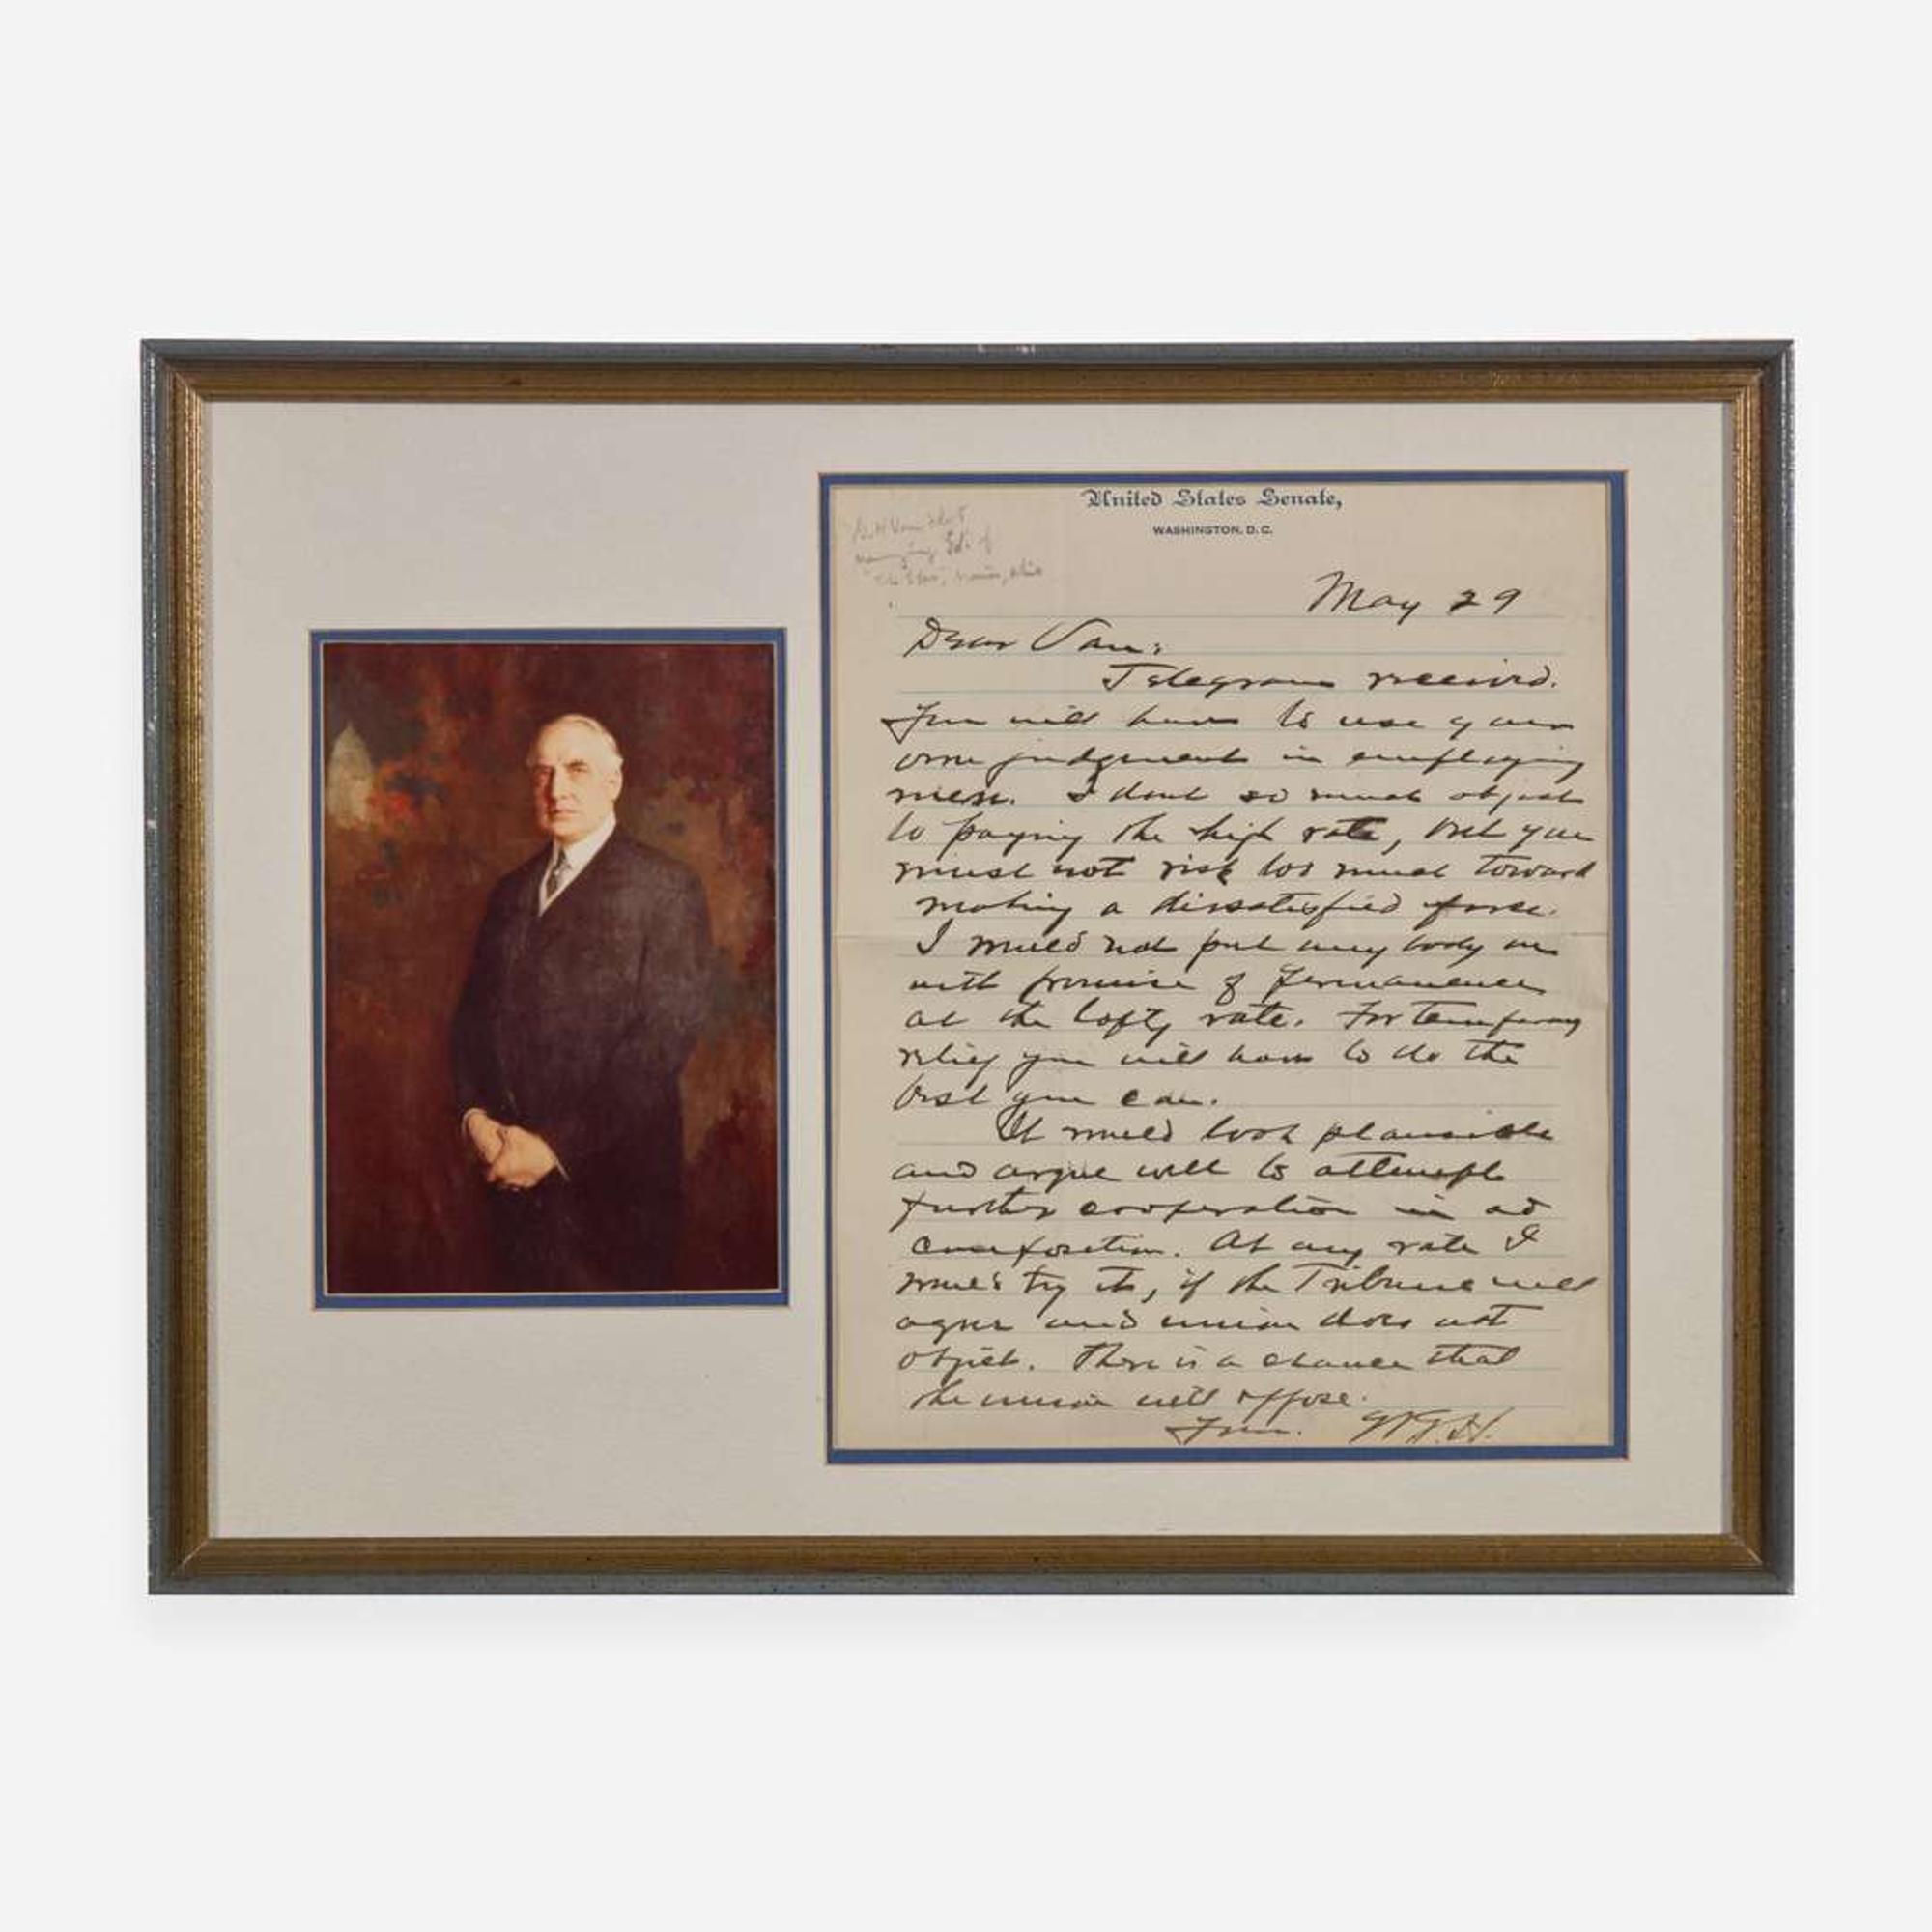 United States Senate,
WASHINGTON, D.C.
G. H. Van Fleet
managing Ed. of
The Star, Marion, Ohio
May 29
Dear Van:
Telegram received.
You will have to use your
own judgment in employing
men. I dont so much object
to paying the high rate, but you
must not risk too much toward
making a dissatisfied force.
I would not put any body on
with promise of permanence
at the lofty rate. For temporary
relief you will have to do the
best you can.
It would look plausible
and argue well to attempt
further cooperation in ad
composition. At any rate I
would try it, if the Tribune will
agree and union does not
object. There is a chance that
the union will oppose.
Yours. W.G.H.